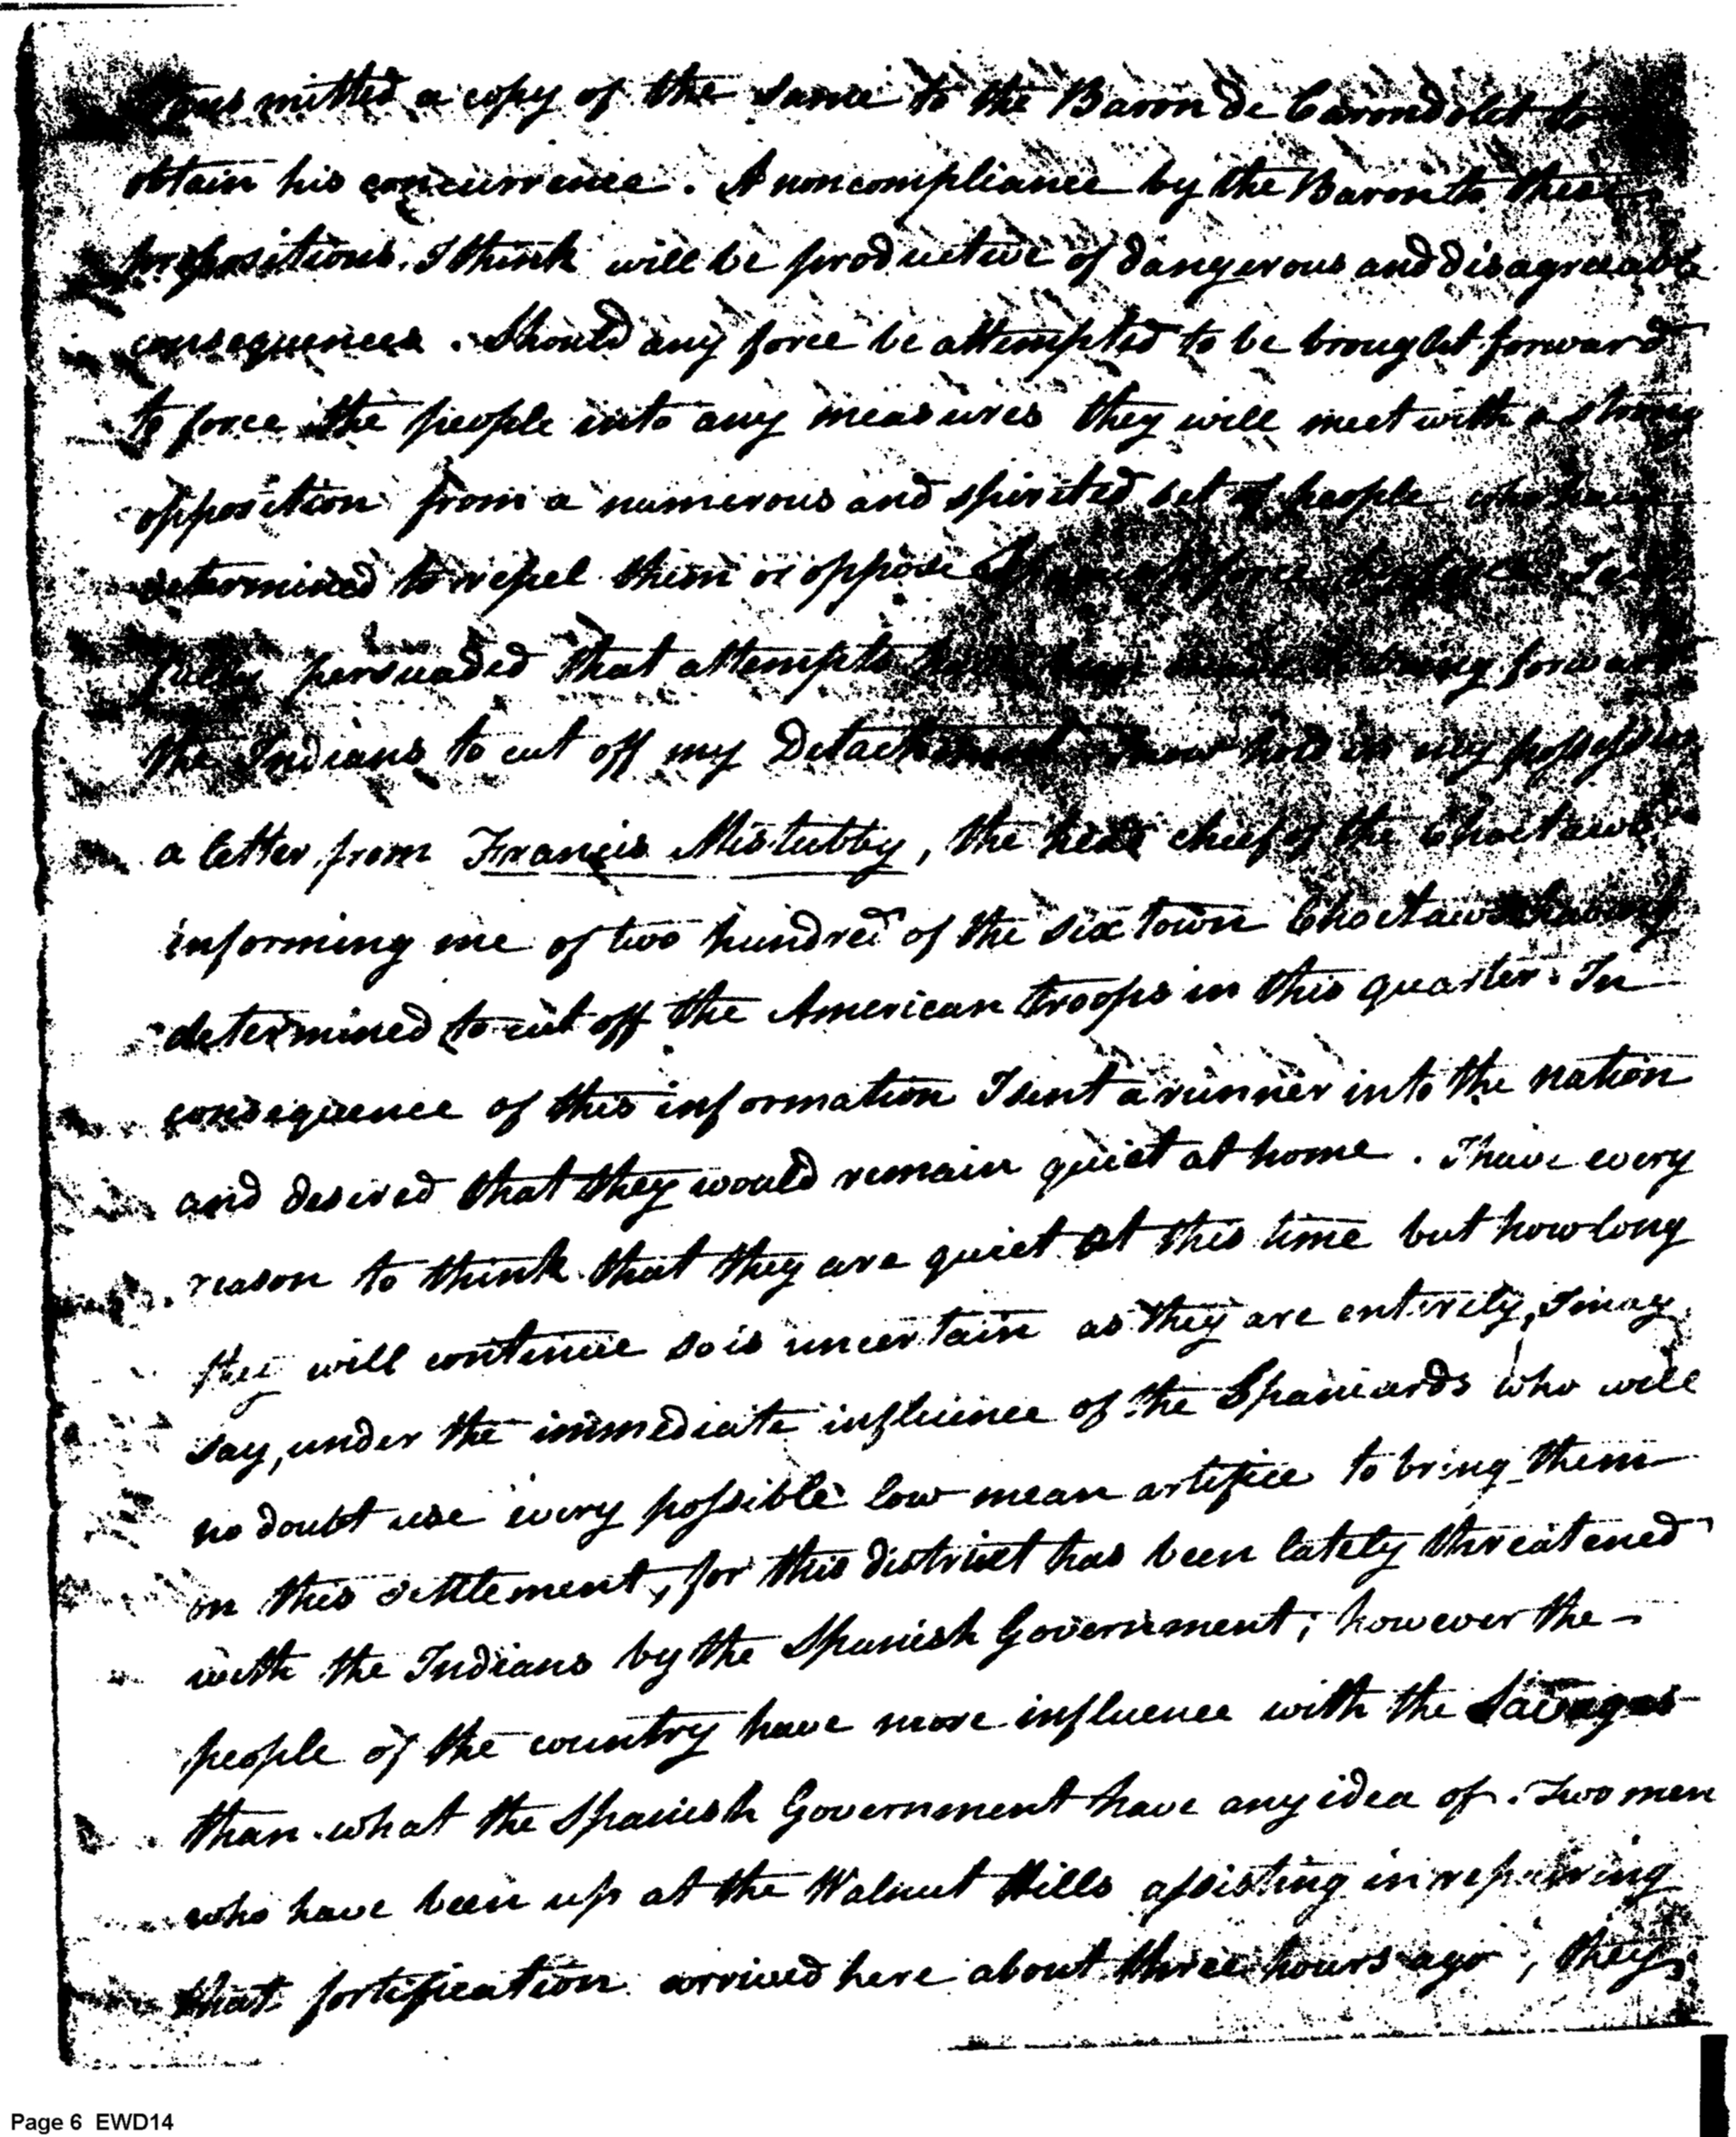 mitted a copy of the same to the Baron de Carondolet to
obtain his concurrence. A noncompliance by the Baron to these
propositions, I think will be productive of dangerous and disagreeable
consequences. Should any force be attempted to be brought forward
to force the people into any measures they will meet with a strong
opposition from a numerous and spirited set of people who have
determined to repel them or oppose force by force. I am
fully persuaded that attempts have been made to bring forward
the Indians to cut off my Detachment I now hold in my possession
a letter from Francis Mistubby, the head chief of the Choctaws
informing me of two hundred of the six town Choctaws having
determined to cut off the American troops in this quarter. In
consequence of this information I sent a runner into the nation
and desired that they would remain quiet at home. I have every
reason to think that they are quiet at this time but how long
they will continue so is uncertain as they are entirely, I may
say, under the immediate influence of the Spaniards who will
no doubt use every possible low mean artifice to bring them
on this settlement, for this district has been lately threatened
with the Indians by the Spanish Government; however the
people of the country have more influence with the Savages
than what the Spanish Government have any idea of. Two men
who have been up at the Walnut Hills assisting in repairing
that fortification arrived here about three hours ago, they
Page 6 EWD14